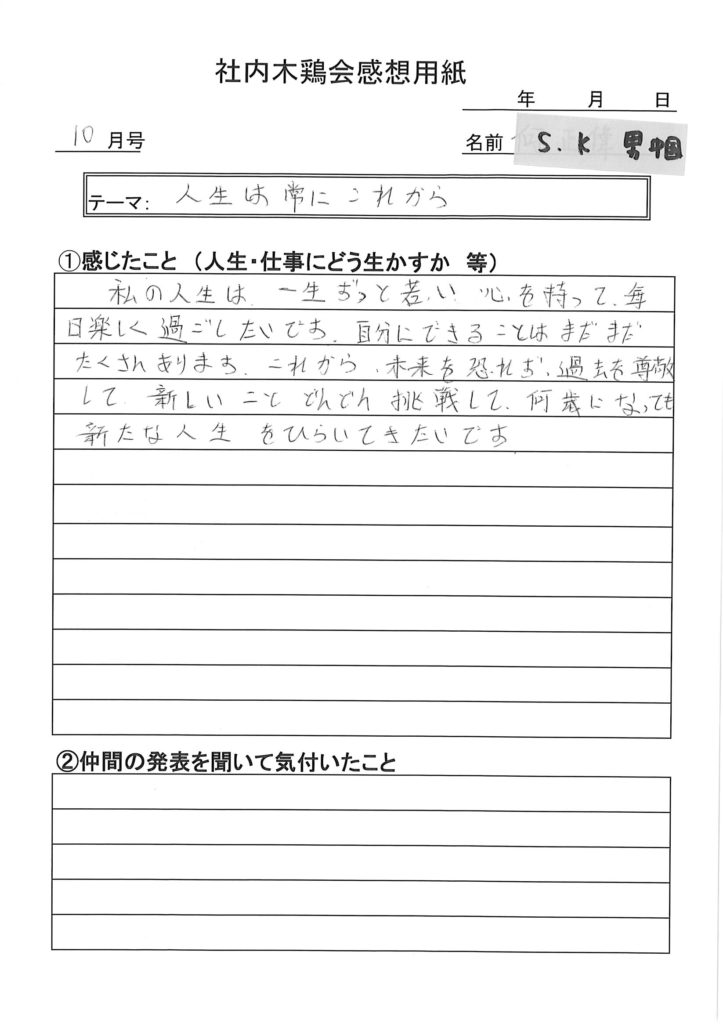 社内木鶏会感想用紙
年 月 日
10月号 名前 S.K 男 中国
テーマ： 人生は常にこれから
①感じたこと （人生・仕事にどう生かすか 等）
私の人生は、一生ずっと若い心を持って、毎
日楽しく過ごしたいです。自分にできることはまだまだ
たくさんあります。これから、未来を恐れず、過去を尊敬
して、新しいことどんどん挑戦して、何歳になっても
新たな人生をひらいてきたいです
②仲間の発表を聞いて気付いたこと